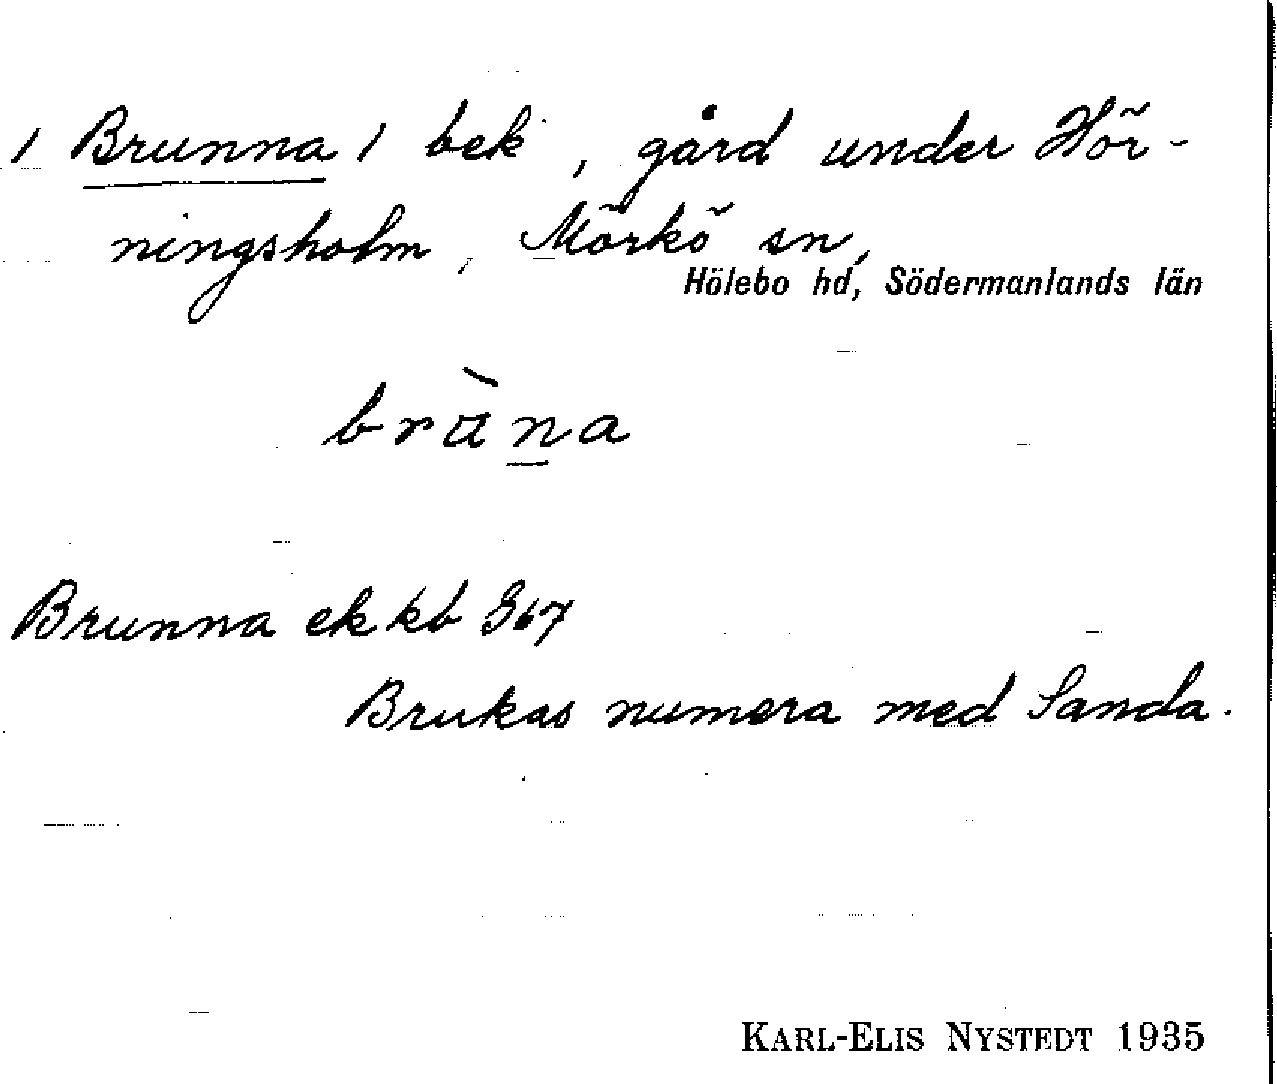 / Brunna / bek , gård under Hör-
ningsholm, Mörkö sn,
Hölebo hd, Södermanlands län
bràna
Brunna ek kb 367
Brukas numera med Sanda.
KARL-ELIS NYSTEDT 1935